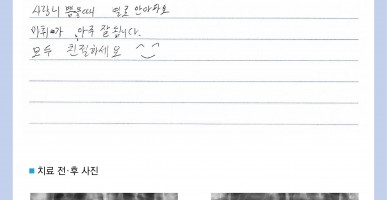 사랑니 뽑을때 별로 안아파요
마취가 아주 잘 됩니다.
모두 친절하세요
■ 치료 전·후 사진